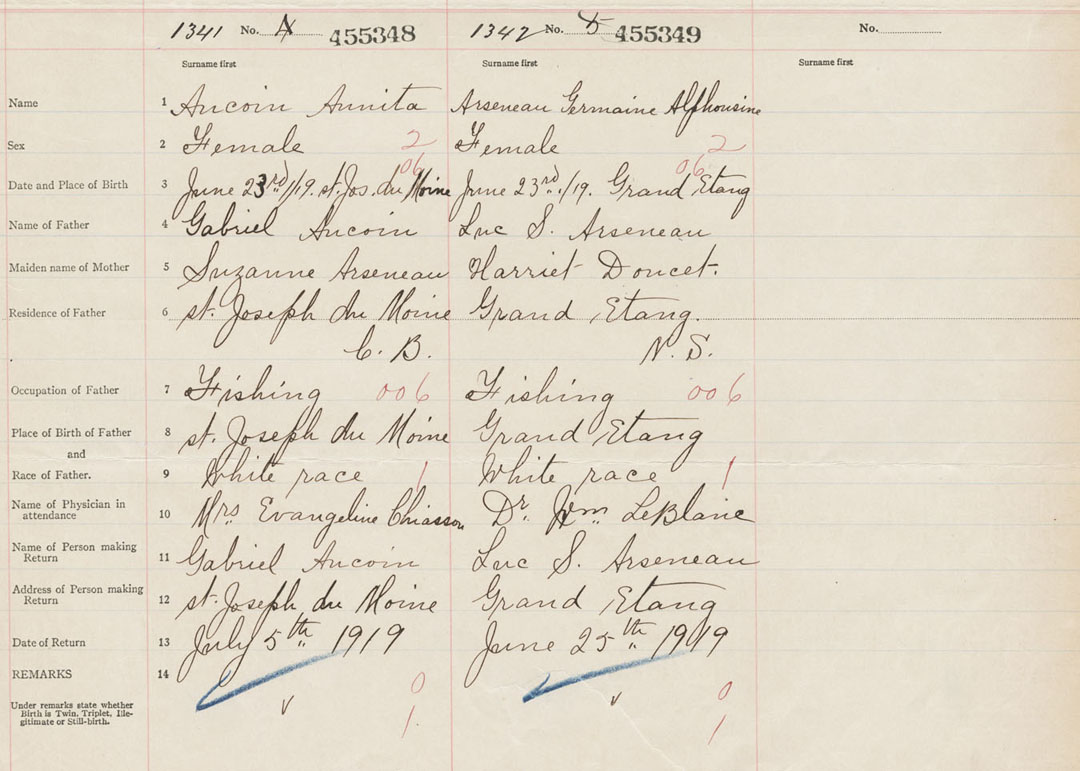 1341 No. 4 455348 1342 No. 5 455349 No.
Surname first Surname first Surname first
Name 1 Aucoin Annita Arseneau Germaine Alphonsine
Sex 2 Female 2 Female 2
06 06
Date and Place of Birth 3 June 23rd/19. St. Jos. du Moine June 23rd/19. Grand Etang
Name of Father 4 Gabriel Aucoin Luc S. Arseneau
Maiden name of Mother 5 Suzanne Arseneau Harriet Doucet.
Residence of Father 6 St. Joseph du Moine Grand Etang.
C. B. N. S.
Occupation of Father 7 Fishing 006 Fishing 006
Place of Birth of Father 8 St. Joseph du Moine Grand Etang
and
Race of Father. 9 White race 1 White race 1
Name of Physician in
attendance 10 Mrs. Evangeline Chiasson Dr. Wm. LeBlanc
Name of Person making
Return 11 Gabriel Aucoin Luc S. Arseneau
Address of Person making
Return 12 St. Joseph du Moine Grand Etang
Date of Return 13 July 5th 1919 June 25th 1919
REMARKS 14
0 0
Under remarks state whether
Birth is Twin, Triplet, Ille-
gitimate or Still-birth.
1 1